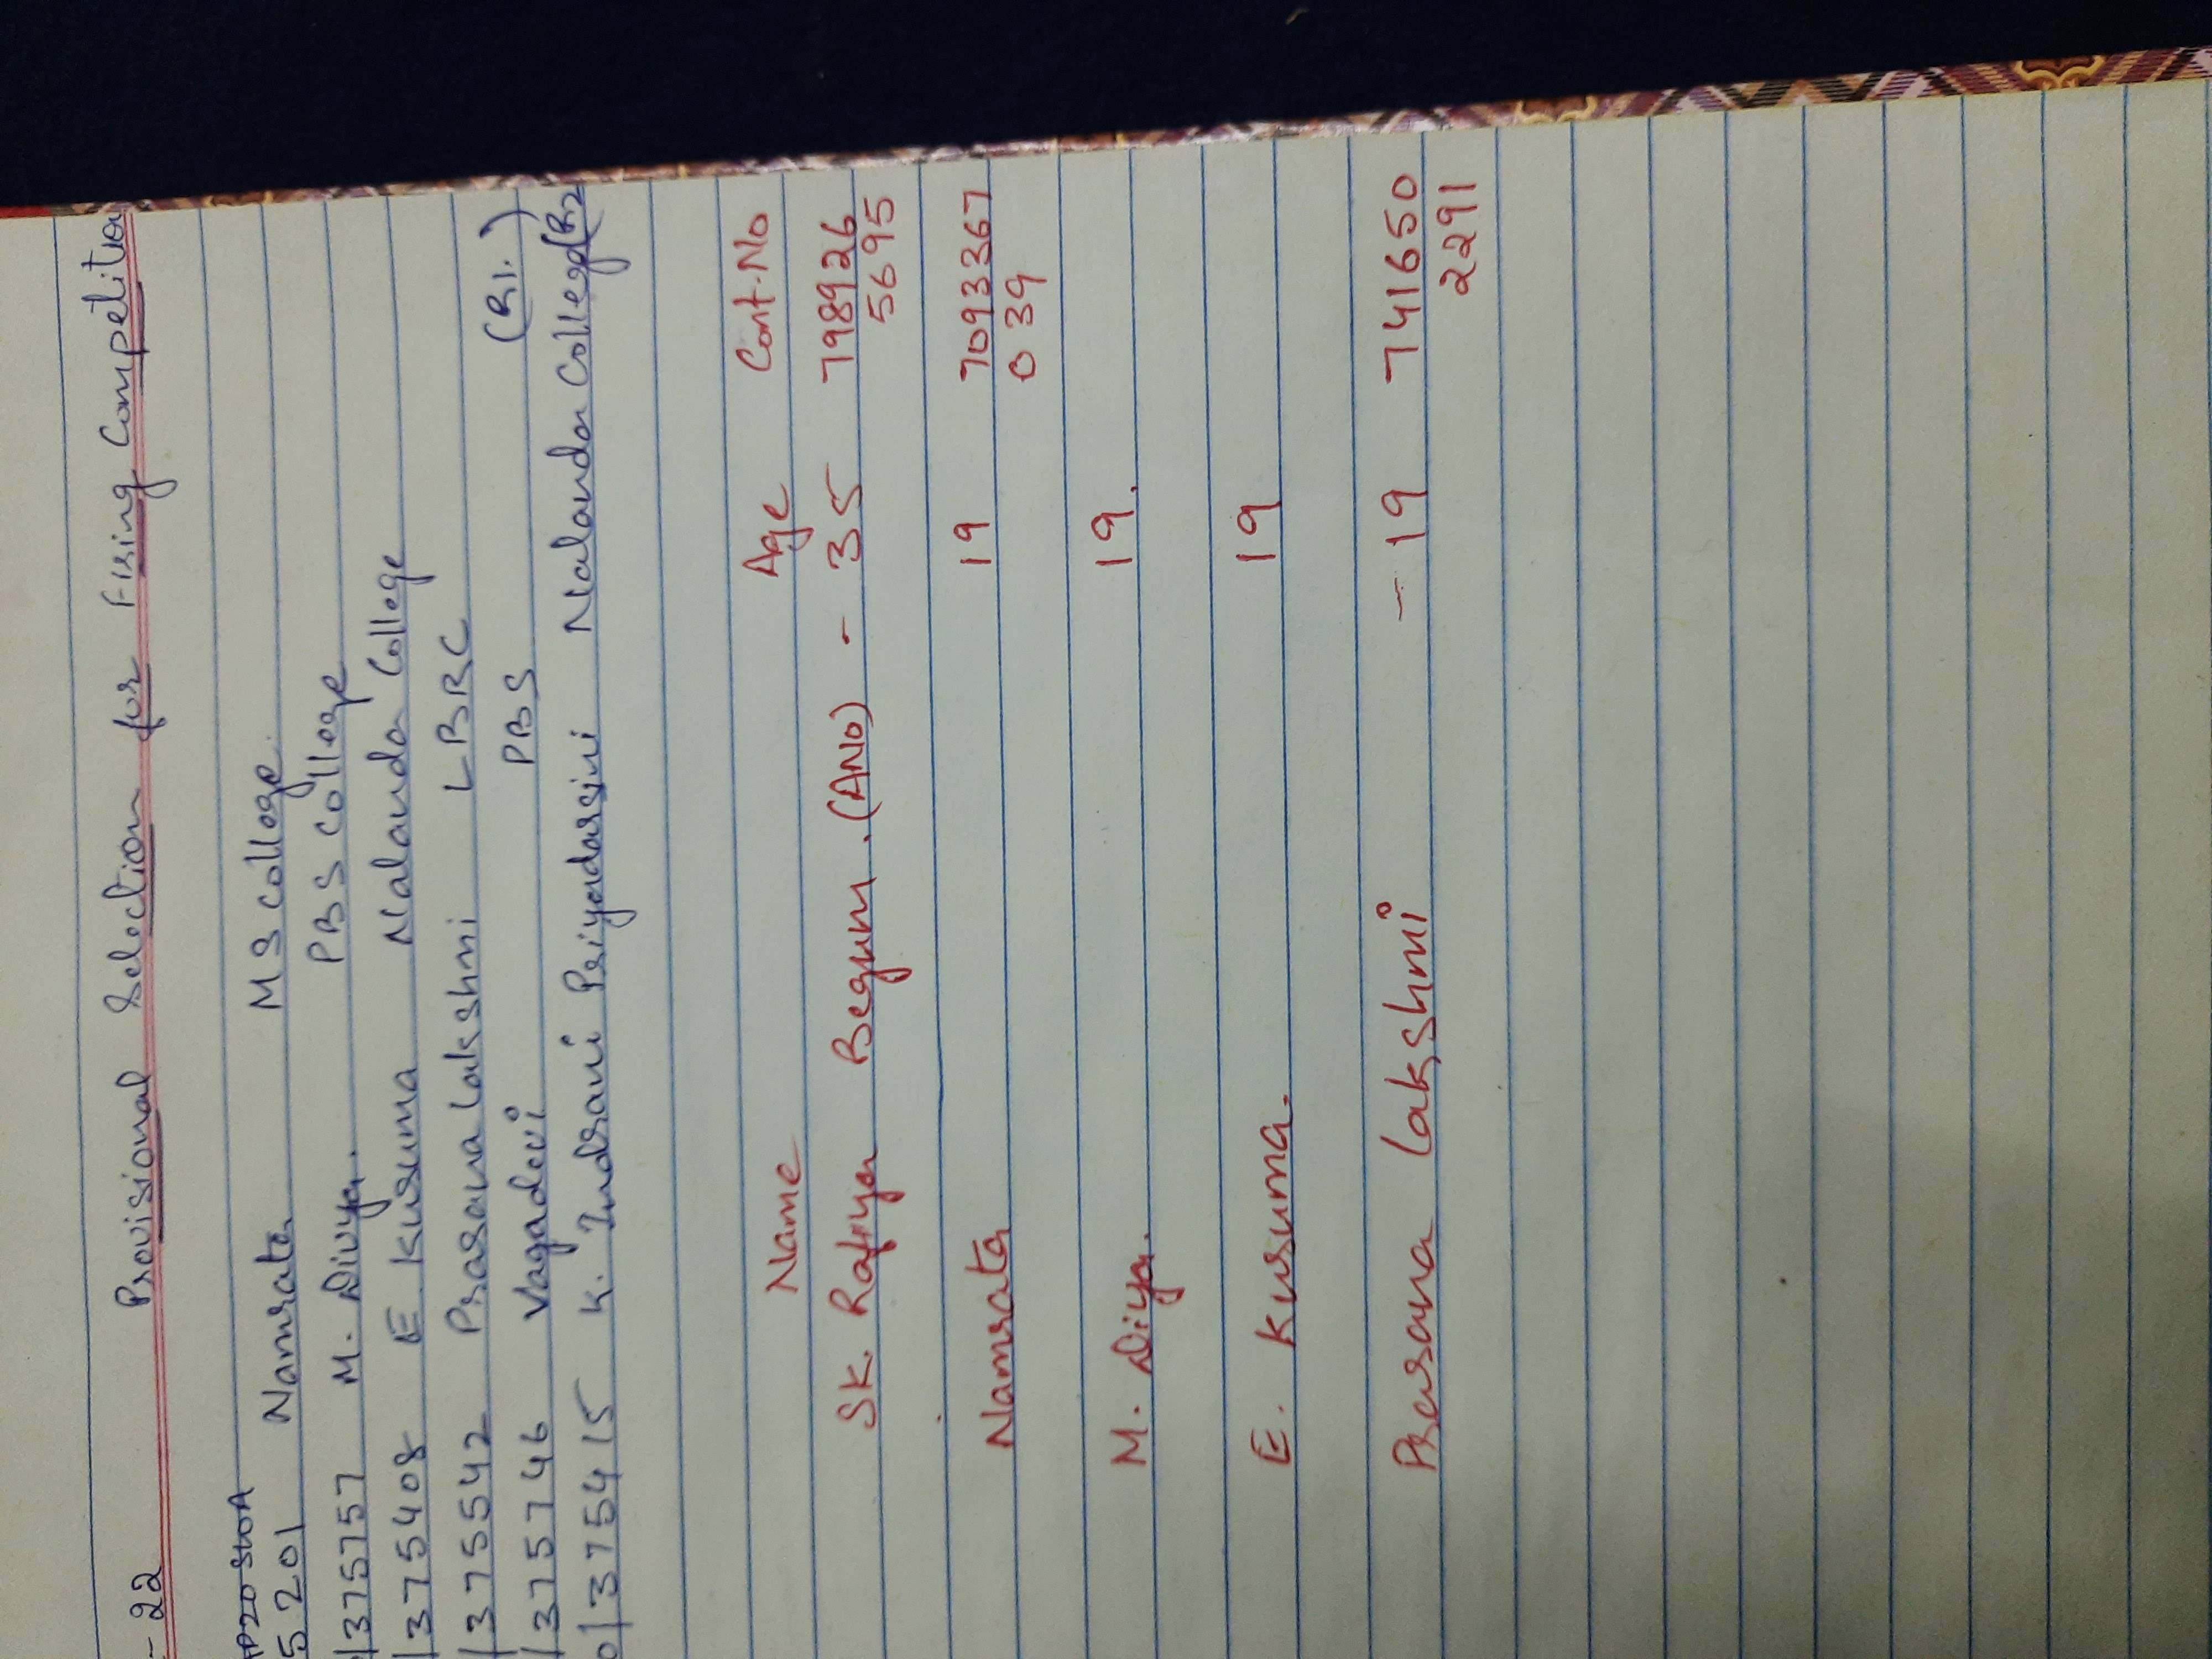 -22 Provisional Selection for Firing Competition
AP20SWA
5201 Namrata MS College
/375757 M. Divya. PBS College
/375408 E Kusuma Nalanda College
/375542 Prasana Lakshmi LBRC
/375746 Vagadevi PBS (R1.)
0/375415 K. Indrani Priyadarsini Nalanda College (R2
Name Age Cont.No
SK. Rafiya Begum.(ANO) - 35 798926
5695
Namrata 19 7093367
039
M. Diya. 19.
E. Kusuma. 19
Prasana Lakshmi - 19 741650
2291